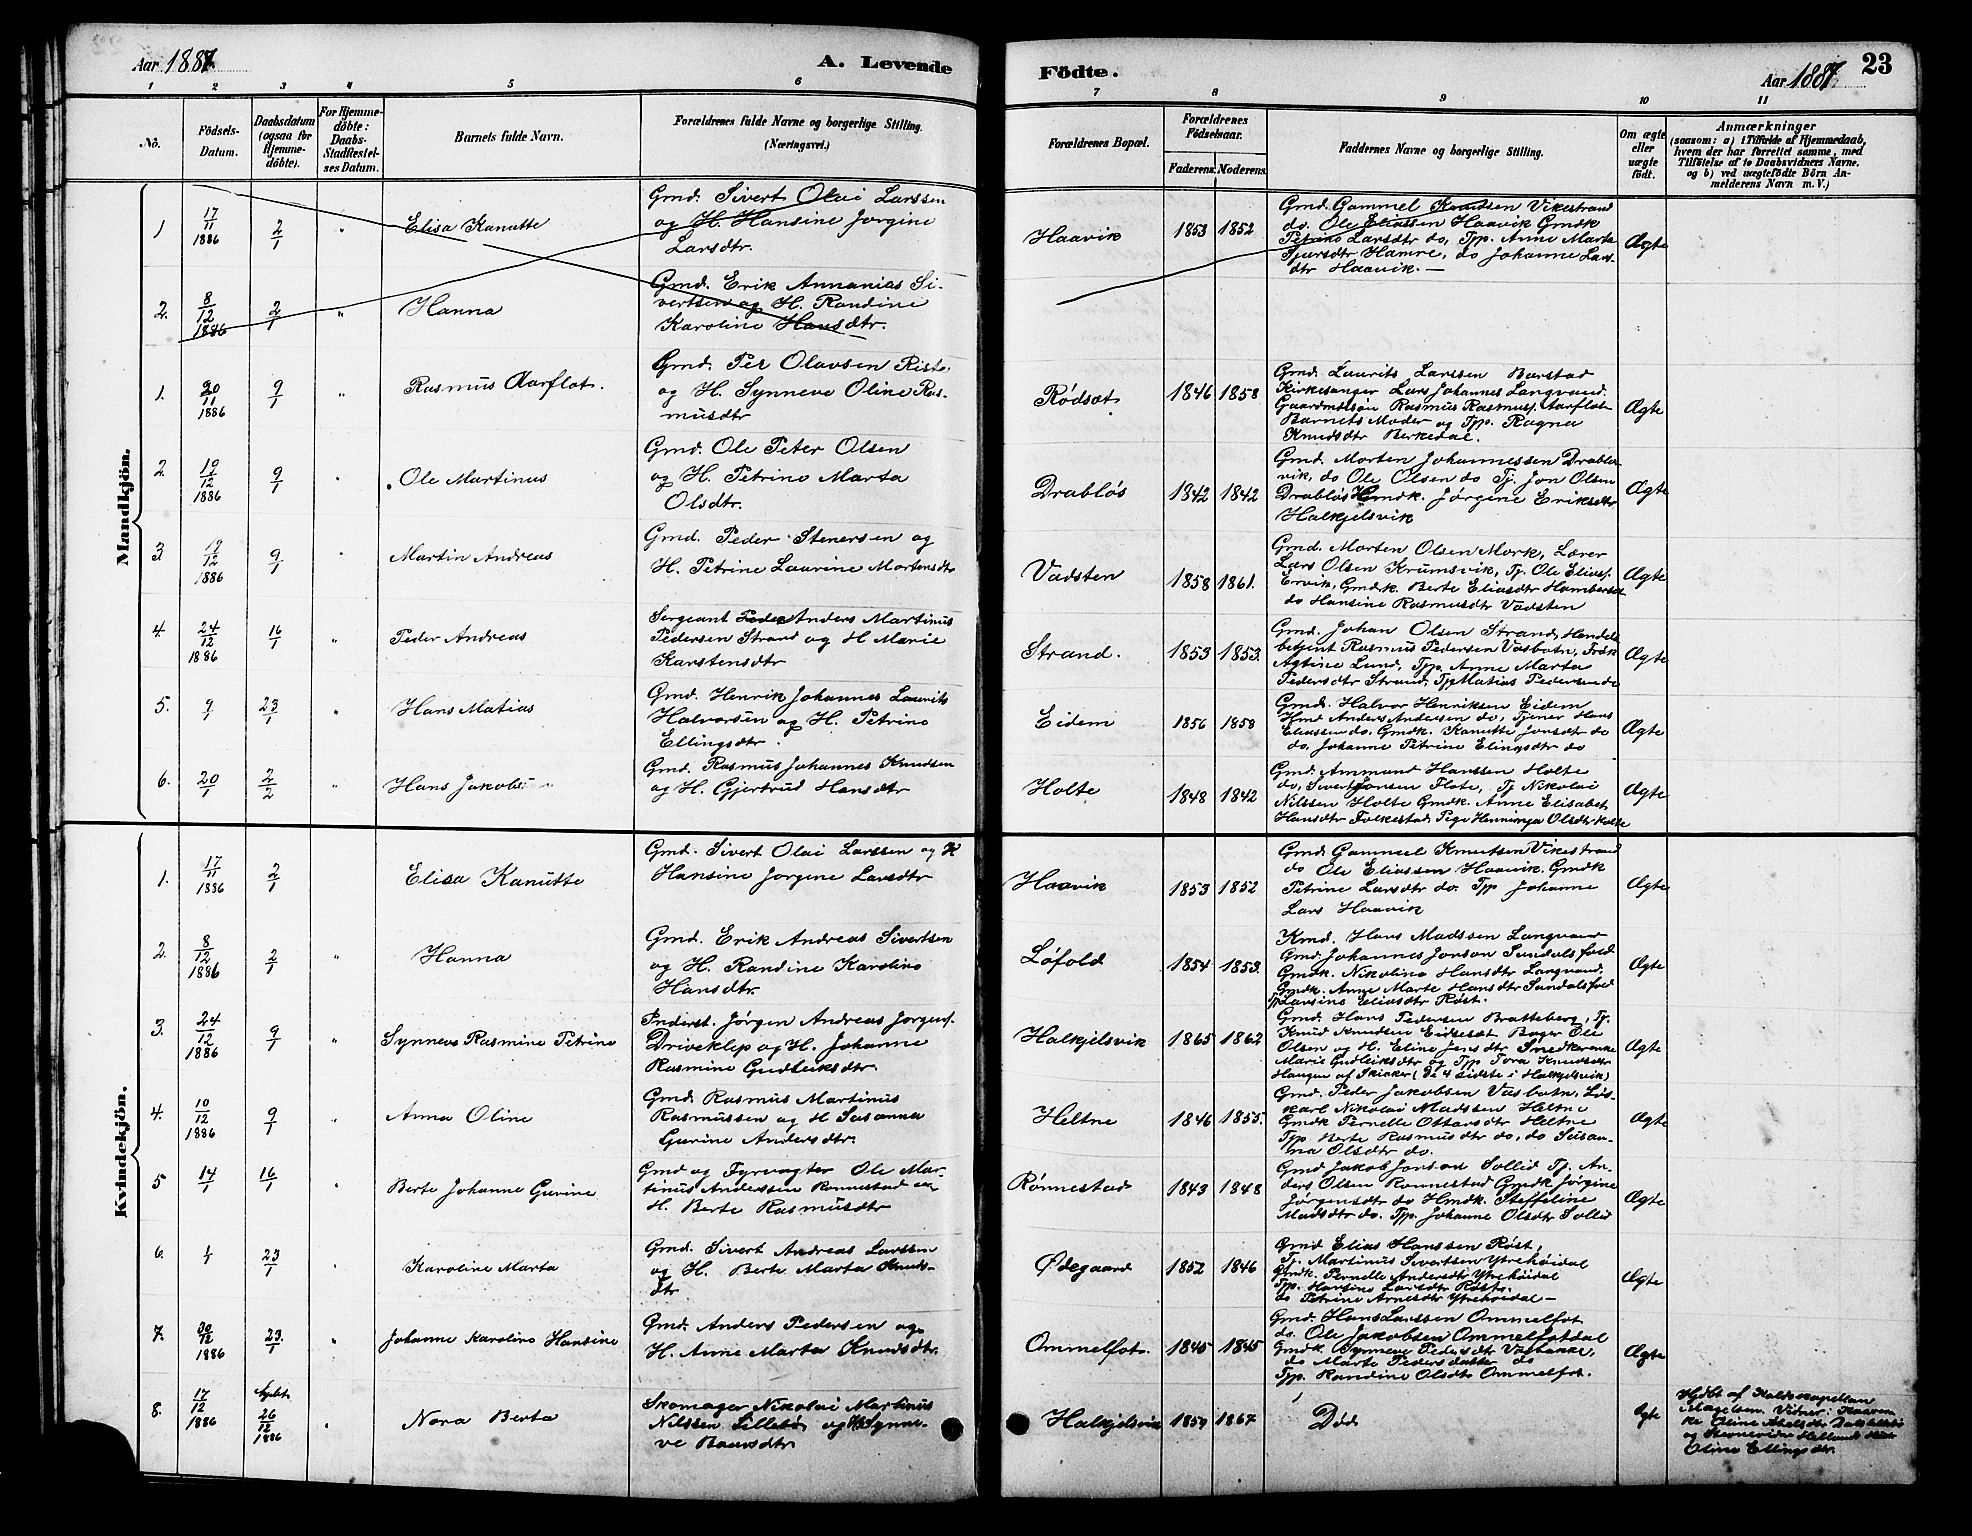 Aar 1887.
A. Levende
Födte.
Aar 1887.
23
1 2 3 4 5 6 7 8 9 10 11
No.
Födsels-
Datum.
Daabsdatum
(ogsaa for
Hjemme-
döbte).
For Hjemme-
döbte:
Daabs-
Stadfæstel-
ses Datum.
Barnets fulde Navn.
Forældrenes fulde Navne og borgerlige Stilling.
(Næringsvei.)
Forældrenes Bopæl.
Forældrenes
Födselsaar.
Faderens. Moderens.
Faddernes Navne og borgerlige Stilling.
Om ægte
eller
uægte
födt.
Anmærkninger
(saasom: a) i Tilfælde af Hjemmedaab,
hvem der har forrettet samme, med
Tilföielse af to Daabsvidners Navne,
og b) ved uægtefödte Börn An-
melderens Navn m. V.)
Mandkjön.
1 17/11 1886 2/1 " Elisa Kanutte
Gmd. Sivert Olai Larssen
og H. Hansine Jørgine
Larsdtr.
Haavik 1853 1852
Gmd. Gammel Knudsen Vikestrand
do. Ole Eliassen Haavik Gmdk
Petrine Larsdtr do, Tpp. Anne Marta
Sjursdtr Hamre, do Johanne Lars-
dtr Haavik. —
Ægte
2. 8/12 1886 2/1 " Hanna
Gmd. Erik Annanias Si-
vertsen og H. Randine
Karoline Hansdtr.
1. 20/11 1886 9/1 " Rasmus Aarflot.
Gmd. Per Olavsen Riste
og H. Synneve Oline Ras-
musdtr
Rødsæt 1846 1858
Gmd. Laurits Larssen Barstad
Kirkesanger Lars Johannes Langvand.
Gaardmdsøn Rasmus Rasmuss. Aarflot
Barnets Moder og Tpp. Ragna
Knudsdtr Berkedal.
Ægte
2. 19/12 1886 9/1 " Ole Martinus
Gmd. Ole Peter Olsen
og H. Petrine Marta
Olsdtr.
Drabløs 1842 1842
Gmd. Morten Johannessen Drabløs-
vik, do Ole Olsen do Tj. Jon Olsen
Drabløs Gmdk. Jørgine Eriksdtr
Halkjelsvik
Ægte
3. 19/12 1886 9/1 " Martin Andreas
Gmd. Peder Stenersen og
H. Petrine Laurine Mortensdtr
Vadsten 1858 1861.
Gmd. Morten Olsen Mork, Lærer
Lars Olsen Krumsvik, Tj. Ole Elias.
Ervik, Gmdk. Berte Eliasdtr
do Hansine Rasmusdtr Vadsten
Ægte
4. 24/12 1886 16/1 " Peder Andreas
Sergeant Peder Anders Martinus
Pedersen Strand og H Marie
Karstensdtr
Strand. 1853 1853.
Gmd. Johan Olsen Strand, Handels
betjent Rasmus Pedersen Vasbotn, Frøk
Agtine Lund, Tpp Anne Marta
Pedersdtr Strand, Tj Matias Pedersen do
Ægte
5. 9/1 23/1 " Hans Matias
Gmd. Henrik Johannes Laurits
Halvorsen og H. Petrine
Ellingsdtr.
Eidem 1856 1858
Gmd. Halvor Henriksen Eidem
Hmd Anders Andersen do, Tjener Hans
Eliassen do. Gmdk. Kanutte Jonsdtr do
do. Johanne Petrine Elingsdtr do
Ægte
6. 20/1 2/2 " Hans Jakob
Gmd. Rasmus Johannes Knudsen
og H. Gjertrud Hansdtr
Holte 1848 1842
Gmd. Ammund Hanssen Holte
do, Sivert Jonsen Flote, Tj Nikolai
Nilssen Holte Gmdk. Anne Elisabet
Hansdtr Folkestad, Pige Henninga Olsdtr Holte
Ægte
Kvindekjön.
1. 17/11 1886 2/1 Elisa Kanutte
Gmd. Sivert Olai Larssen og H
Hansine Jørgine Larsdtr
Haavik 1853 1852
Gmd. Gammel Knutsen Vikestrand
do Ole Eliassen Haavik. Gmdk
Petrine Larsdtr do. Tpp Johanne
Lars Haavik
Ægte
2. 8/12 1886 2/1 " Hanna
Gmd. Erik Andreas Sivertsen
og H. Randine Karoline
Hansdtr.
Løfold 1854 1853.
Kmd. Hans Madssen Langvand
Gmd. Johannes Jonson Sundalsfold
Gmdk. Nikoline Hansdtr Langvand.
Gmdk. Anne Marte Hansdtr Sundalsfold
Tp Larsine Eliasdtr Røst.
Ægte
3. 24/12 1886 9/1 " Synneve Rasmine Petrine
Inderst. Jørgen Andreas Jørgens.
Driveklep og H. Johanne
Rasmine Gudleiksdtr.
Halkjelsvik 1865 1862
Gmd. Hans Pedersen Bratteberg, Tj.
Knud Knudsen Eidsesæt Bager Ole
Olsen og H. Eline Jensdtr Smedkvande
Marie Gudleiksdtr og Tpp Tora Knudsdtr
Haugen af Skicker (De 4 sidste i Halkjelsvik)
Ægte
4. 10/12 1886 9/1 Anna Oline
Gmd Rasmus Martinus
Rasmussen og H Susanna
Gurine Andersdtr.
Heltne 1846 1855.
Gmd. Peder Jakobsen Vasbotn. Løs-
karl Nikolai Madssen Heltne
Gmdk Pernelle Ottarsdtr Heltne
Tpp Berte Rasmusdtr do, do Susan-
na Olsdtr do.
Ægte
5 14/1 16/1 " Berte Johanne Gurine
Gmd og Fyrvagter Ole Mar-
tinus Anderssen Rønnestad og
H. Berte Rasmusdtr
Rønnestad 1843 1848
Gmd Jakob Jonson Sollid Tj. An-
ders Olsen Rønnestad Gmdk Jørgine
Jørgensdtr do Hmdk. Steffeline
Madsdtr do. Tpp. Johanne Olsdtr Sollid
Ægte
6. 23/1 Karoline Marta
Gmd. Sivert Andreas Larssen
og H. Berte Marta Knuds-
dtr
Ødegaard 1852 1846
Gmd Elias Hanssen Røst,
Tj. Martinus Sivertsen Ytrehøidal
Gmdk. Pernelle Andersdtr Ytrehøidal
Tpp. Hansine Larsdtr Røste.
do Petrine Arnesdtr Ytrehøidal —
Ægte
7. 20/12 1886 23/1 " Johanne Karoline Hansine
Gmd. Anders Pedersen og
H. Anne Marta Knudsdtr.
Ommelfot. 1845 1845
Gmd. Hans Larssen Ommelfot
do. Ole Jakobsen Ommelfotdal
Gmdk Synneve Pedersdtr
do Marte Pedersdatter do
Tpp. Randine Olsdtr Ommelfot.
Ægte
8. 17/12 1886 26/12 1886 Nora Berta
Skomager Nikolai Martinus
Nilssen Lillebø og H Synne-
ve Baarsdtr
Halkjelsvik 1859 1867
Død
Ægte
Hjdbt af Kaldskapellan
Magelsen. Vidner:
Oline Abelsdtr
Oline Ellingsdtr.